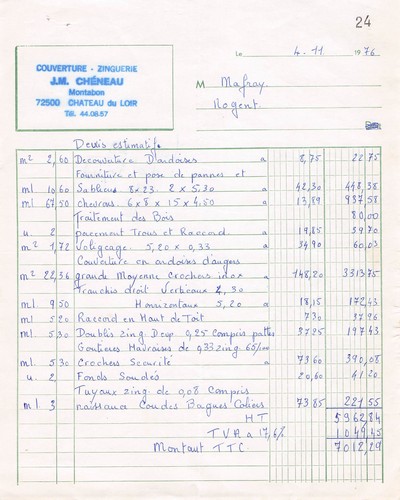 24
COUVERTURE - ZINGUERIE
J.M. CHÉNEAU
Montabon
72500 CHATEAU du LOIR
Tél. 44.08.57
Le 4.11 1976
M Mafray
Nogent
Devis estimatif.
m² 2,60 Decouverture D'ardoises a 8,75 22 75
Fourniture et pose de pannes et
ml 10,60 Sablieus 8x23. 2 x 5.30 a 42,30 448,38
ml 67,50 chevrons. 6 x 8 x 15 x 4.50 a 13,89 937,58
Traitement des Bois 80,00
u. 2 Trous et Raccord. a 19,85 39,70
m² 1,72 Voligeage. 5,20 x 0,33. a 34,90 60,03
Couverture en ardoises d'angers
m² 22,36 grande Moyenne Crochets inox a 148,20 3313,75
Tranchis droit Verticaux 4,30
ml 9 50 Horizontaux 5,20 a 18,15 172,43
ml 5 20 Raccord en Haut de Toit 7 30 37,96
ml 5,30 Doublis zing. Devp. 0,25 Compris pattes 37 25 197 43
Goutieres Havraises de 0,33 zing 65/100
ml 5 30 Crochets Securité a 73 60 390,08
u. 2 Fonds Soudés 20,60 41.20
Tuyaux zing. de 0,08 Compris
ml 3 Coudes Bagues Coliers 73,85 221 55
HT 5962,84
TVA a 17,6% 1049,45
Montant TTC 7012,29